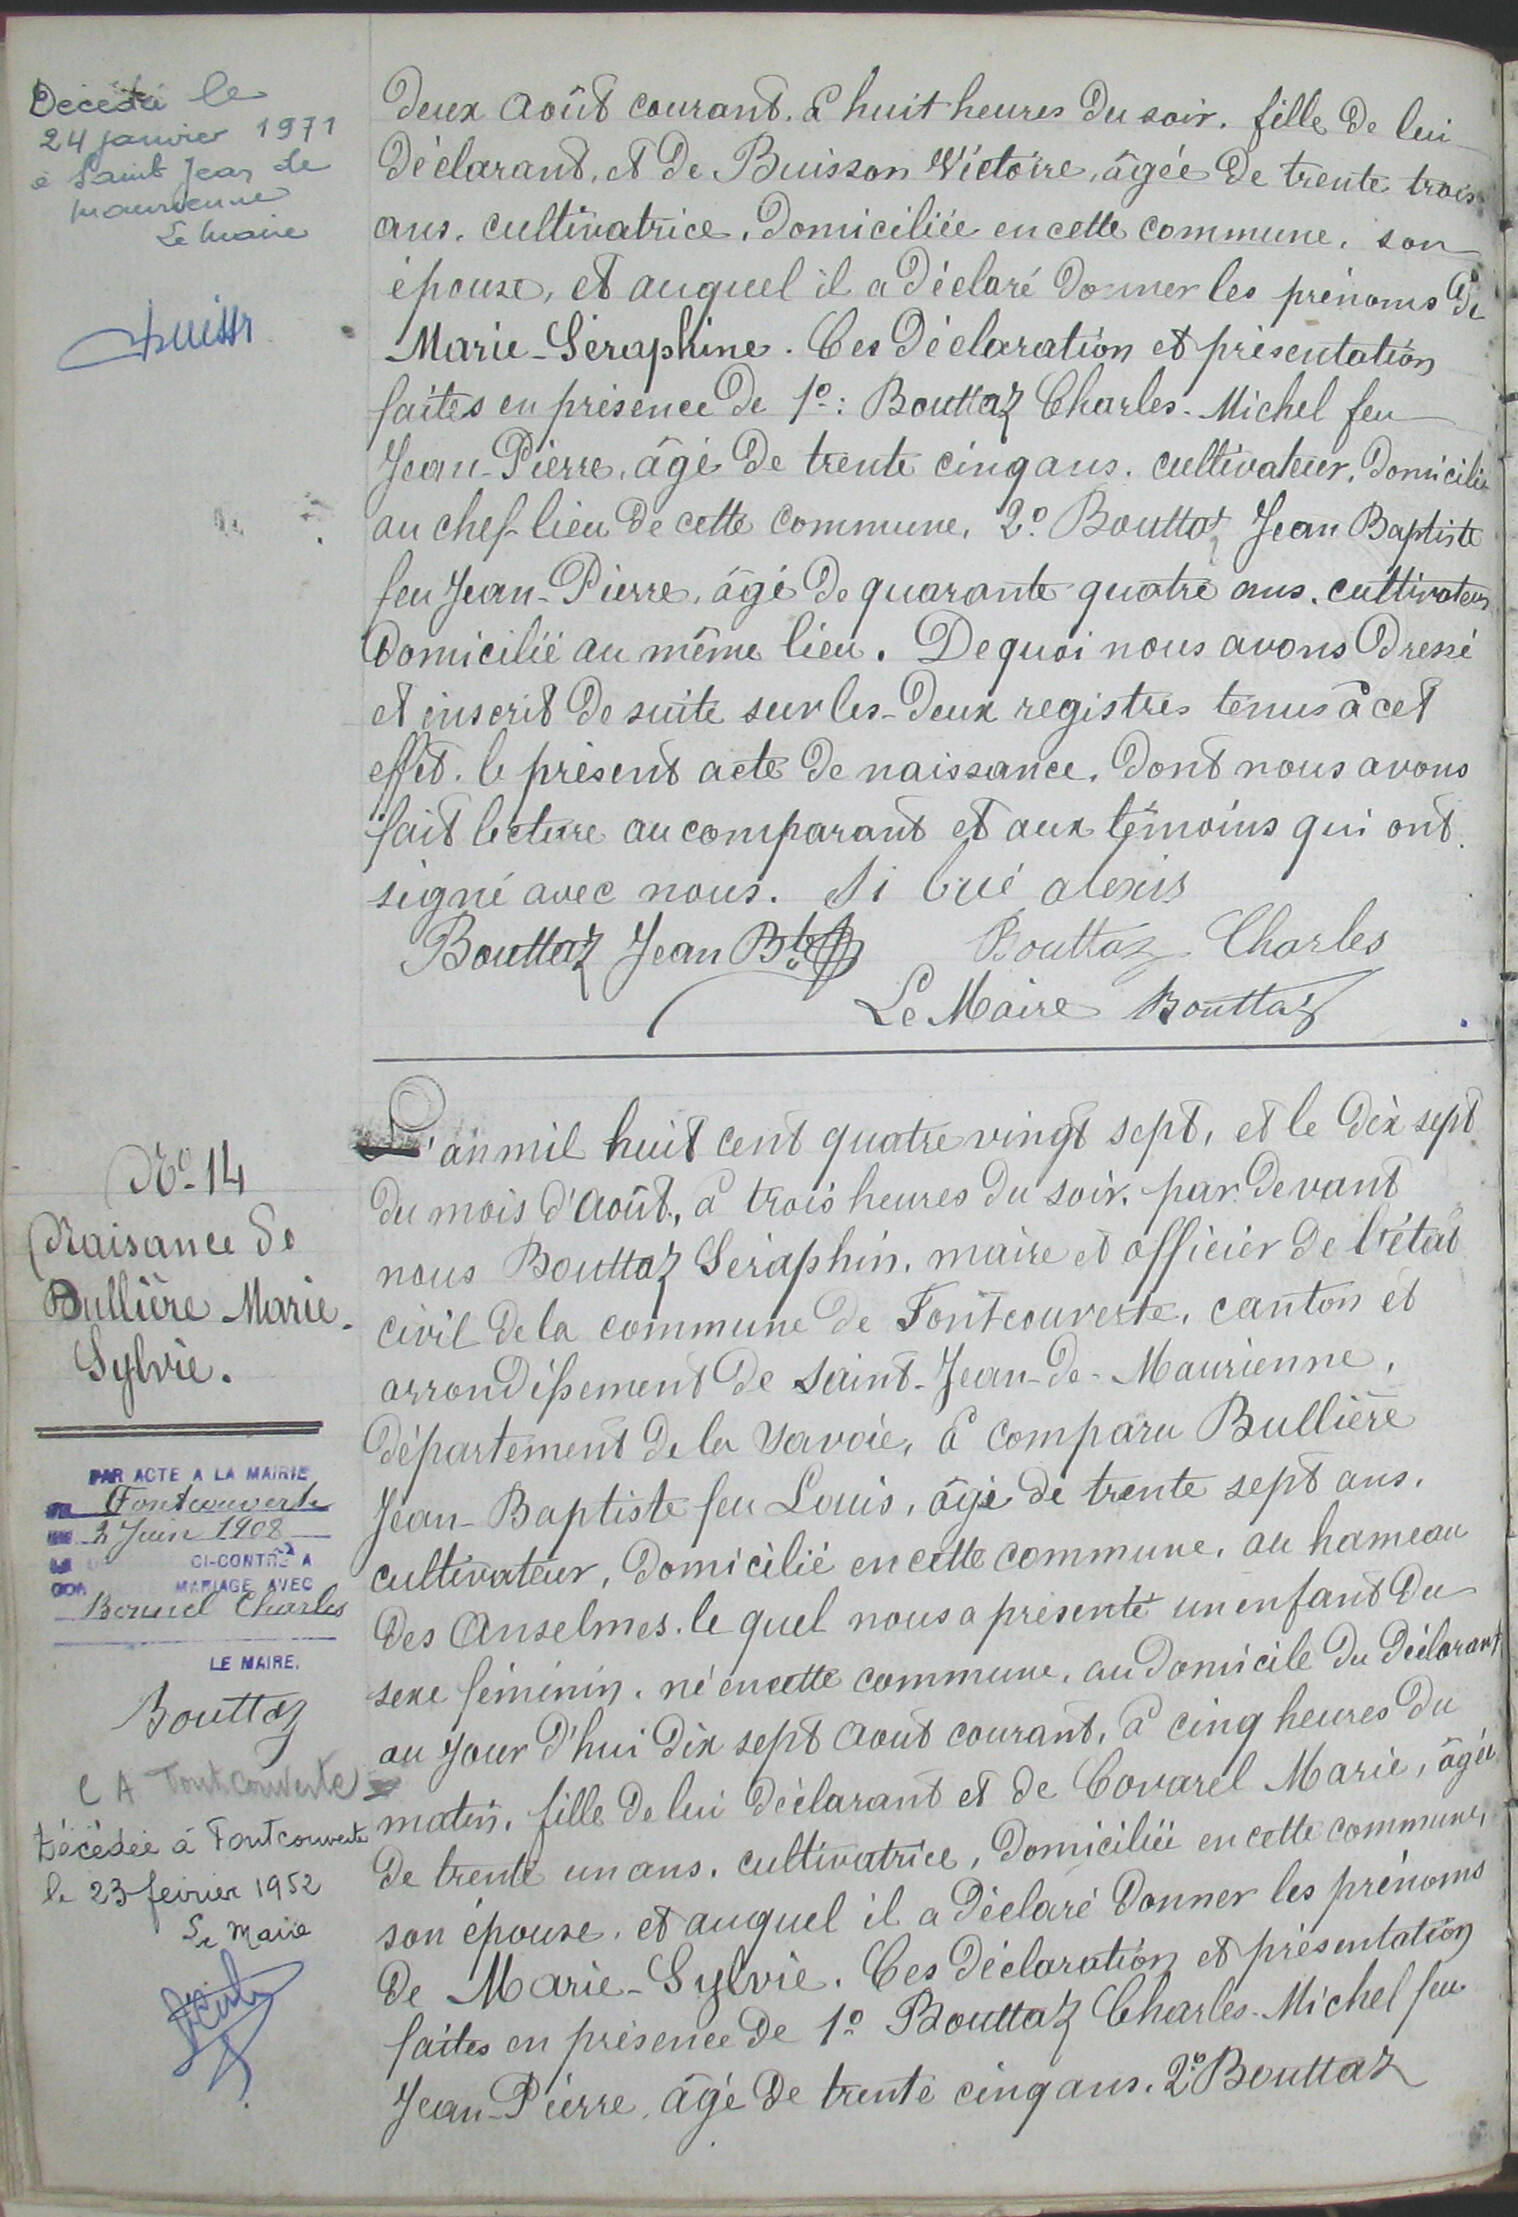 Décédée le
24 janvier 1971
à Saint Jean de
Maurienne
Le Maire
deux Août courant. à huit heures du soir. fille de lui
déclarant, et de Buisson Victoire, âgée de trente trois
ans. cultivatrice, domiciliée en cette commune, son
épouse, et auquel il a déclaré donner les prénoms de
Marie-Séraphine. Ces déclaration et présentation
faites en présence de 1º: Bouttaz Charles-Michel feu
Jean-Pierre, âgé de trente cinq ans. cultivateur, domicilié
au chef-lieu de cette commune, 2º Bouttaz Jean Baptiste
feu Jean-Pierre, âgé de quarante quatre ans, cultivateur
domicilié au même lieu. De quoi nous avons dressé
et inscrit de suite sur les-deux registres tenus à cet
effet. le présent acte de naissance, dont nous avons
fait lecture au comparant et aux témoins qui ont
signé avec nous. alexis
Bouttaz Jean Bte Bouttaz Charles
Le Maire Bouttaz
Nº 14
Naisance de
Bullière Marie-
Sylvie.
PAR ACTE A LA MAIRIE
Fontcouverte
2 Juin 1908
CI-CONTRE A
MARIAGE AVEC
Bonnel Charles
LE MAIRE,
Bouttaz
A Fontcouverte
Décédée à Fontcouverte
le 23 février 1952
Le Maire
L'an mil huit cent quatre vingt sept, et le dix sept
du mois d'Août, à trois heures du soir, par devant
nous Bouttaz Séraphin, maire et officier de l'état
civil de la commune de Fontcouverte, canton et
arrondissement de Saint-Jean-de-Maurienne,
département de la Savoie, à comparu Bullière
Jean-Baptiste feu Louis, âgé de trente sept ans.
cultivateur, domicilié en cette commune, au hameau
des Anselmes. le quel nous a présenté un enfant du
sexe féminin, né en cette commune, au domicile du déclarant
au jour d'hui dix sept Aout courant, à cinq heures du
matin, fille de lui déclarant et de Covarel Marie, âgée
de trente un ans, cultivatrice, domiciliée en cette commune,
son épouse, et auquel il a déclaré donner les prénoms
de Marie-Sylvie. Ces déclaration et présentation
faites en présence de 1º Bouttaz Charles-Michel feu
Jean-Pierre, âgé de trente cinq ans. 2º Bouttaz